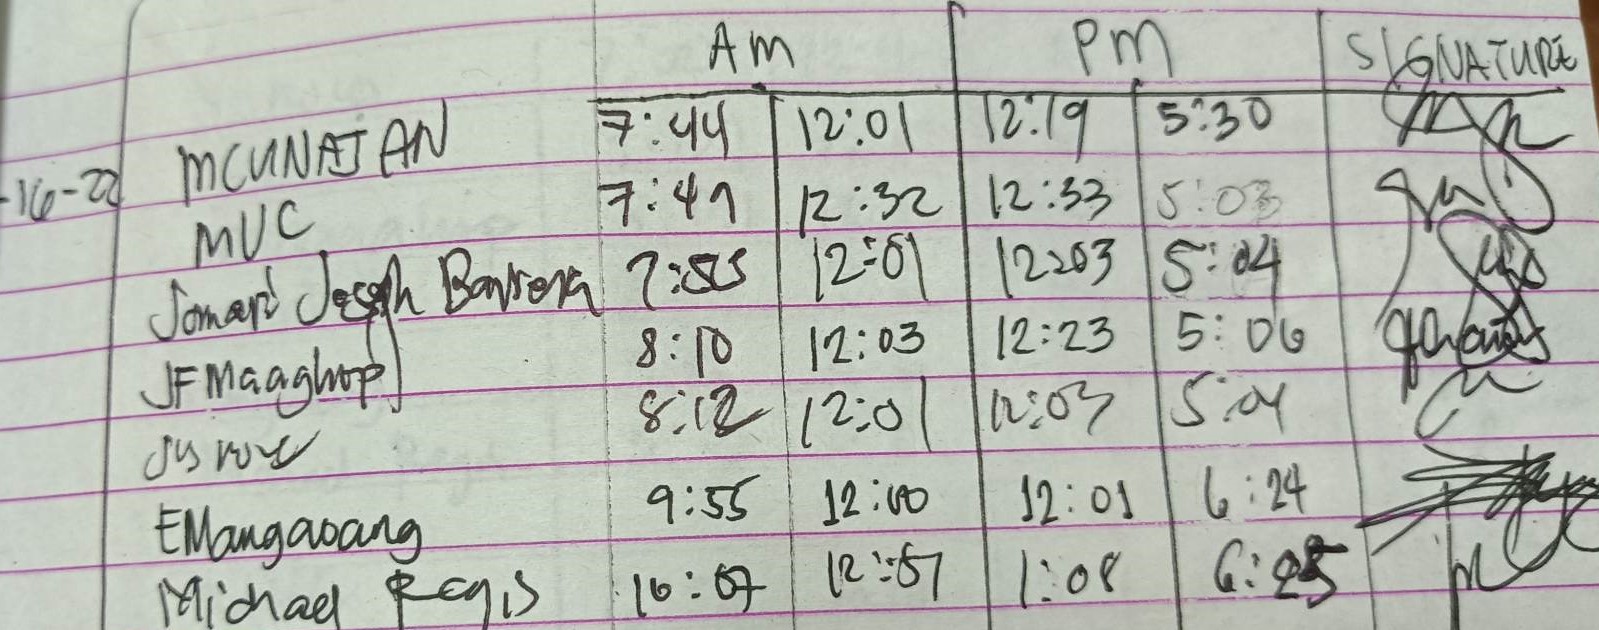 Am PM SIGNATURE
MCUNAJAN 7:44 12:01 12:19 5:30
-16-22 MUC 7:49 12:32 12:33 5:03
Jomari Joseph 12:01 12:03 5:04
8:10 12:03 12:23 5:06
8:12 12:01 12:03 5:04
EMangaoang 9:55 12:00 12:01 6:24
Michael Regis 10:07 12:57 1:08 6:25